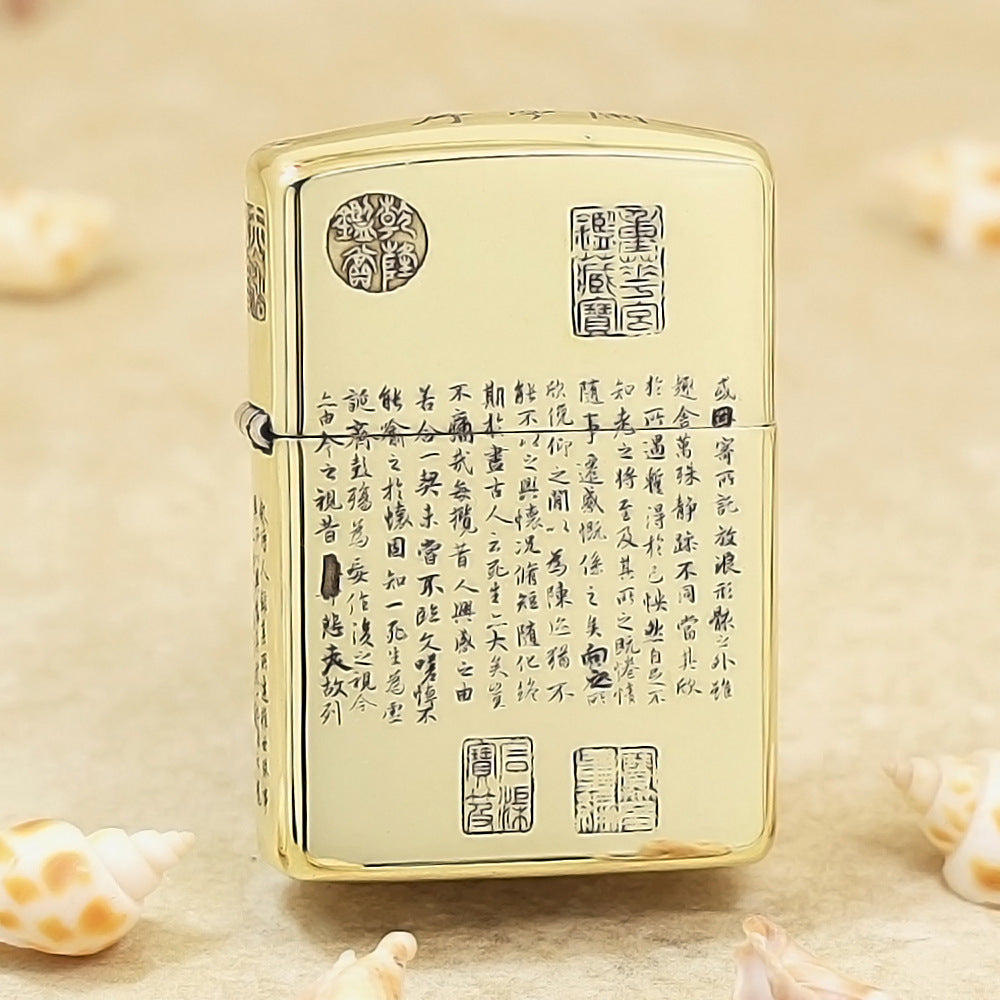 蘭亭序
重華宮鑑藏寶
乾隆鑑賞
或因寄所託放浪形骸之外雖
趣舍萬殊静躁不同當其欣
於所遇暫得於己怏然自足不
知老之將至及其所之既惓情
隨事遷感慨係之矣向之所
欣俛仰之閒以為陳迹猶不
能不以之興懷況脩短隨化終
期於盡古人云死生亦大矣豈
不痛哉每攬昔人興感之由
若合一契未嘗不臨文嗟悼不
能喻之於懷固知一死生為虛
誕齊彭殤為妄作後之視今
亦由今之視昔悲夫故列
石渠寶笈